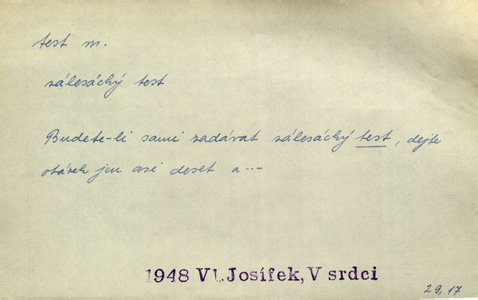 test m.
zálesácký test
Budete-li sami zadávat zálesácký test, dejte
otázek jen asi deset a---
1948 Vl. Josífek, V srdci
29,17